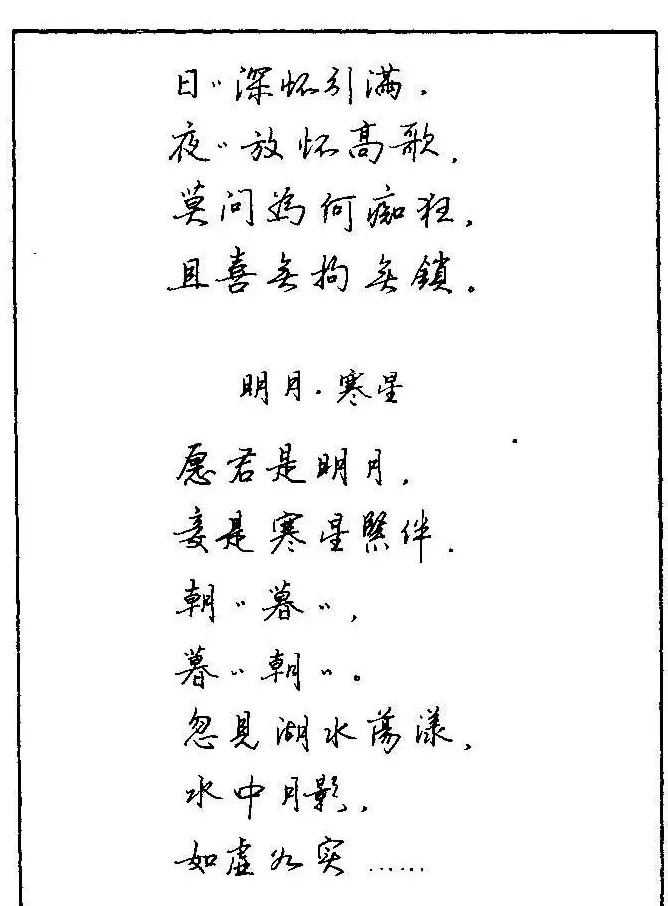 日〃深怀引满,
夜〃放怀高歌,
莫问為何痴狂,
且喜无拘无鎖。
明月·寒星
愿君是明月,
妾是寒星緊伴.
朝〃暮〃,
暮〃朝〃。
忽見湖水蕩漾,
水中月影,
如虚如实……